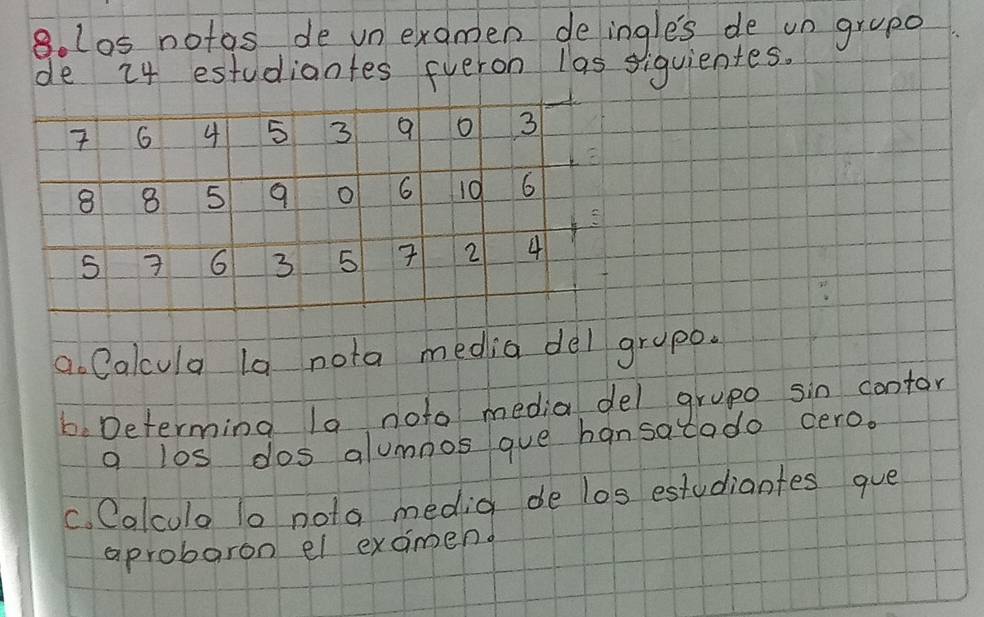 8. Los notas de un examen de inglés de un grupo
de 24 estudiantes fueron las siguientes.
7 6 4 5 3 9 0 3
8 8 5 9 0 6 10 6
5 7 6 3 5 7 2 4
a. Calcula la nota media del grupo.
b. Determina la nota media del grupo sin contar
a los dos alumnos que han sacado cero.
c. Calcula la nota media de los estudiantes que
aprobaron el exámen.